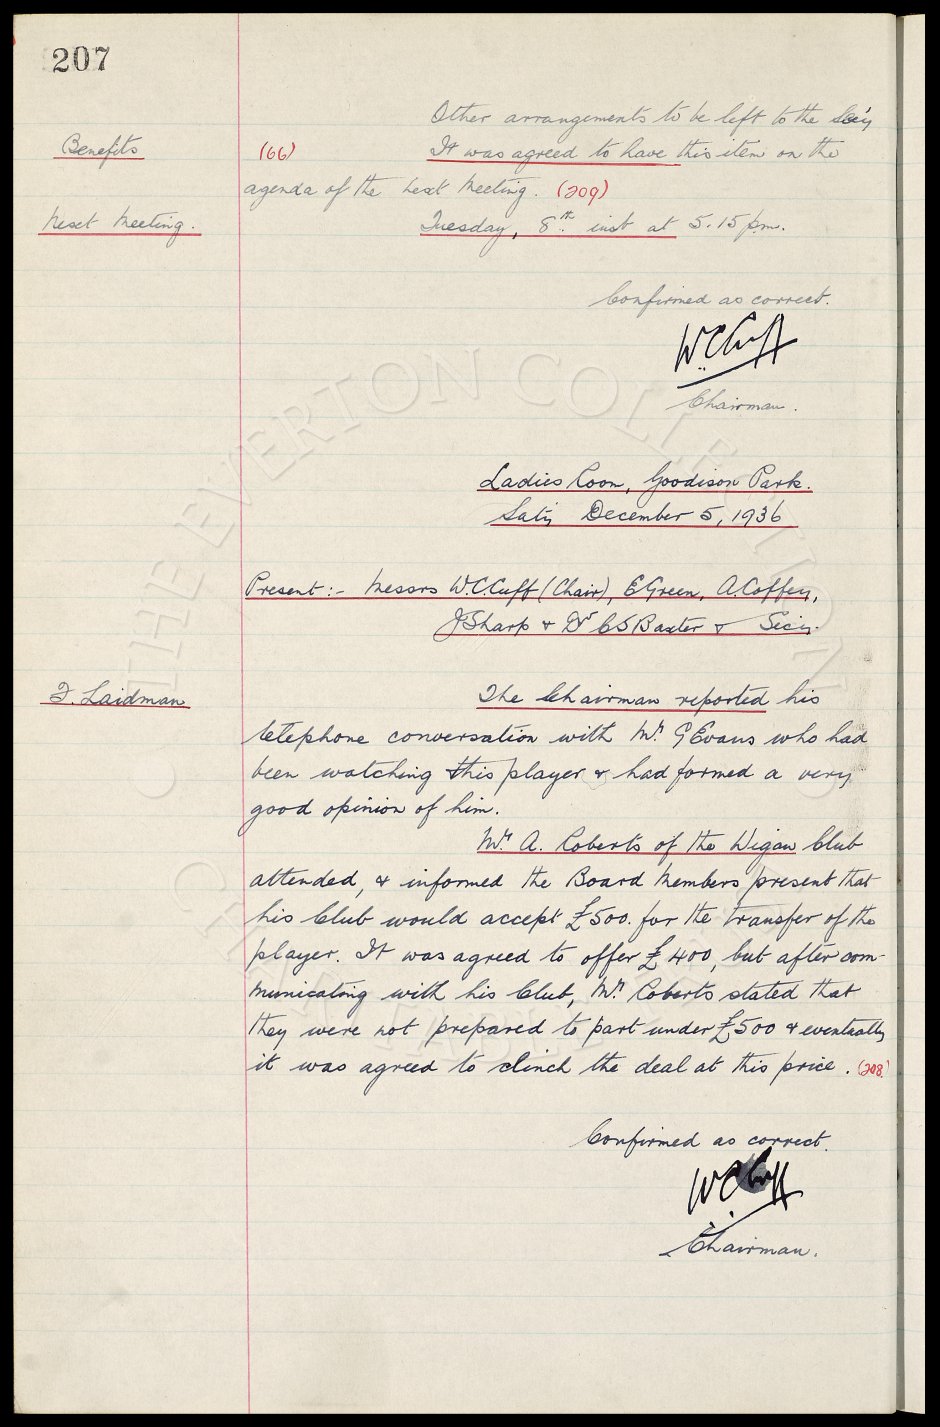 207
Other arrangements to be left to the Sec'y
Benefits (66) It was agreed to have this item on the
agenda of the next meeting. (209)
Next Meeting. Tuesday, 8th inst at 5.15 pm.
Confirmed as correct.
W.C. Cuff
Chairman.
Ladies Room, Goodison Park.
Sat'y December 5, 1936
Present:- Messrs W.C. Cuff (Chair), E Green, A. Coffey,
J Sharp & Dr C S Baxter & Sec'y.
F. Laidman The Chairman reported his
telephone conversation with Mr G Evans who had
been watching this player & had formed a very
good opinion of him.
Mr A. Roberts of the Wigan Club
attended, & informed the Board Members present that
his Club would accept £500. for the transfer of the
player. It was agreed to offer £400, but after com-
municating with his Club, Mr Roberts stated that
they were not prepared to part under £500 & eventually
it was agreed to clinch the deal at this price. (208)
Confirmed as correct.
W C Cuff
Chairman.
© THE EVERTON COLLECTION